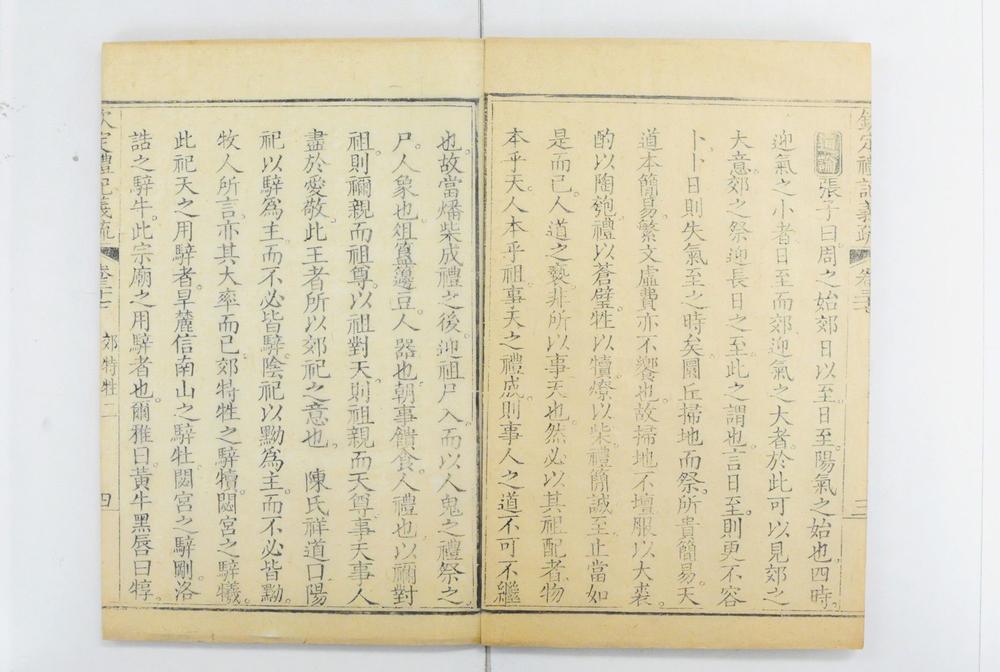 欽定禮記義疏 卷三十 三
通論 張子曰周之始郊日以至日至陽氣之始也四時
迎氣之小者日至而郊迎氣之大者於此可以見郊之
大意郊之祭迎長日之至此之謂也言日至則更不容
卜卜日則失氣至之時矣圜丘掃地而祭所貴簡易天
道本簡易繁文虛費亦不饗也故掃地不壇服以大裘
酌以陶匏禮以蒼璧牲以犢燎以柴禮簡誠至止當如
是而已人道之褻非所以事天也然必以其祖配者物
本乎天人本乎祖事天之禮成則事人之道不可不繼
也故當燔柴成禮之後迎祖尸入而以人鬼之禮祭之
尸人象也俎簋籩豆人器也朝事饋食人禮也以禰對
祖則禰親而祖尊以祖對天則祖親而天尊事天事人
盡於愛敬此王者所以郊祀之意也 陳氏祥道曰陽
祀以騂為主而不必皆騂陰祀以黝為主而不必皆黝
牧人所言亦其大率而已郊特牲之騂犢閟宮之騂犧
此祀天之用騂者旱麓信南山之騂牡閟宮之騂剛洛
誥之騂牛此宗廟之用騂者也爾雅曰黃牛黑唇曰犉
欽定禮記義疏 卷三十 郊特牲二 四